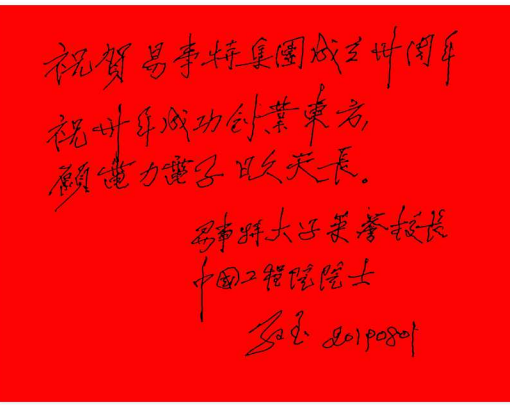 祝賀易事特集團成立卅周年
祝卅年成功创業東方,
願電力電子日久天長。
易事特大学荣誉校長
中國工程院院士
20190801